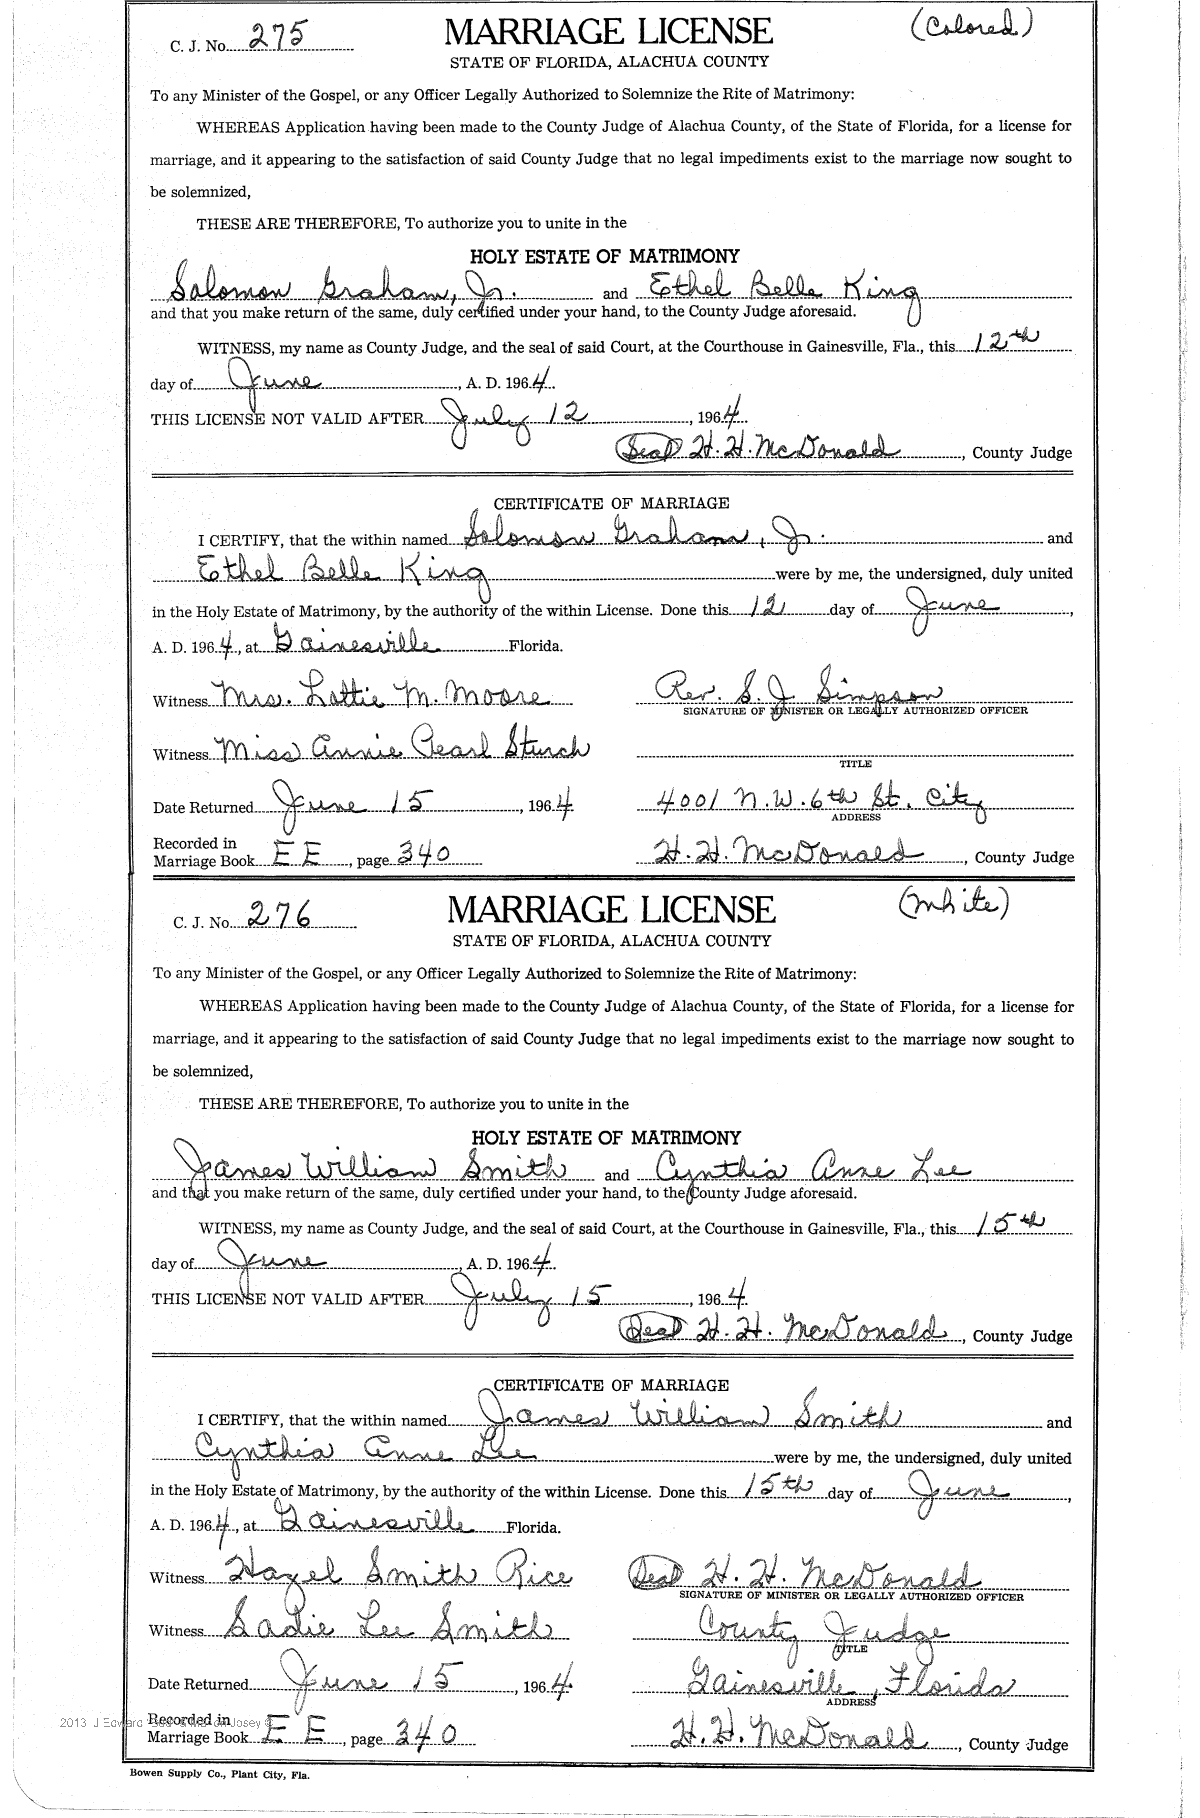 C. J. No. 275 MARRIAGE LICENSE (Colored)
STATE OF FLORIDA, ALACHUA COUNTY
To any Minister of the Gospel, or any Officer Legally Authorized to Solemnize the Rite of Matrimony:
WHEREAS Application having been made to the County Judge of Alachua County, of the State of Florida, for a license for
marriage, and it appearing to the satisfaction of said County Judge that no legal impediments exist to the marriage now sought to
be solemnized,
THESE ARE THEREFORE, To authorize you to unite in the
HOLY ESTATE OF MATRIMONY
Solomon Graham, Jr. and Ethel Belle King
and that you make return of the same, duly certified under your hand, to the County Judge aforesaid.
WITNESS, my name as County Judge, and the seal of said Court, at the Courthouse in Gainesville, Fla., this 12th
day of June, A. D. 1964.
THIS LICENSE NOT VALID AFTER July 12, 1964
(Seal) H. H. McDonald, County Judge
CERTIFICATE OF MARRIAGE
I CERTIFY, that the within named Solomon Graham, Jr. and
Ethel Belle King were by me, the undersigned, duly united
in the Holy Estate of Matrimony, by the authority of the within License. Done this 12 day of June,
A. D. 1964, at Gainesville Florida.
Witness Mrs. Lottie M. Moore Rev. S. J. Simpson
SIGNATURE OF MINISTER OR LEGALLY AUTHORIZED OFFICER
Witness Miss Annie Pearl Sturch
TITLE
Date Returned June 15, 1964 4001 N.W. 6th St. City
ADDRESS
Recorded in
Marriage Book EE, page 340 H. H. McDonald, County Judge
C. J. No. 276 MARRIAGE LICENSE (White)
STATE OF FLORIDA, ALACHUA COUNTY
To any Minister of the Gospel, or any Officer Legally Authorized to Solemnize the Rite of Matrimony:
WHEREAS Application having been made to the County Judge of Alachua County, of the State of Florida, for a license for
marriage, and it appearing to the satisfaction of said County Judge that no legal impediments exist to the marriage now sought to
be solemnized,
THESE ARE THEREFORE, To authorize you to unite in the
HOLY ESTATE OF MATRIMONY
James William Smith and Cynthia Anne Lee
and that you make return of the same, duly certified under your hand, to the County Judge aforesaid.
WITNESS, my name as County Judge, and the seal of said Court, at the Courthouse in Gainesville, Fla., this 15th
day of June, A. D. 1964.
THIS LICENSE NOT VALID AFTER July 15, 1964
(Seal) H. H. McDonald, County Judge
CERTIFICATE OF MARRIAGE
I CERTIFY, that the within named James William Smith and
Cynthia Anne Lee were by me, the undersigned, duly united
in the Holy Estate of Matrimony, by the authority of the within License. Done this 15th day of June,
A. D. 1964, at Gainesville Florida.
Witness Hazel Smith Rice (Seal) H. H. McDonald
SIGNATURE OF MINISTER OR LEGALLY AUTHORIZED OFFICER
Witness Sadie Lee Smith County Judge
TITLE
Date Returned June 15, 1964 Gainesville, Florida
ADDRESS
Recorded in
2013 J Edward Josey
Marriage Book EE, page 340 H. H. McDonald, County Judge
Bowen Supply Co., Plant City, Fla.